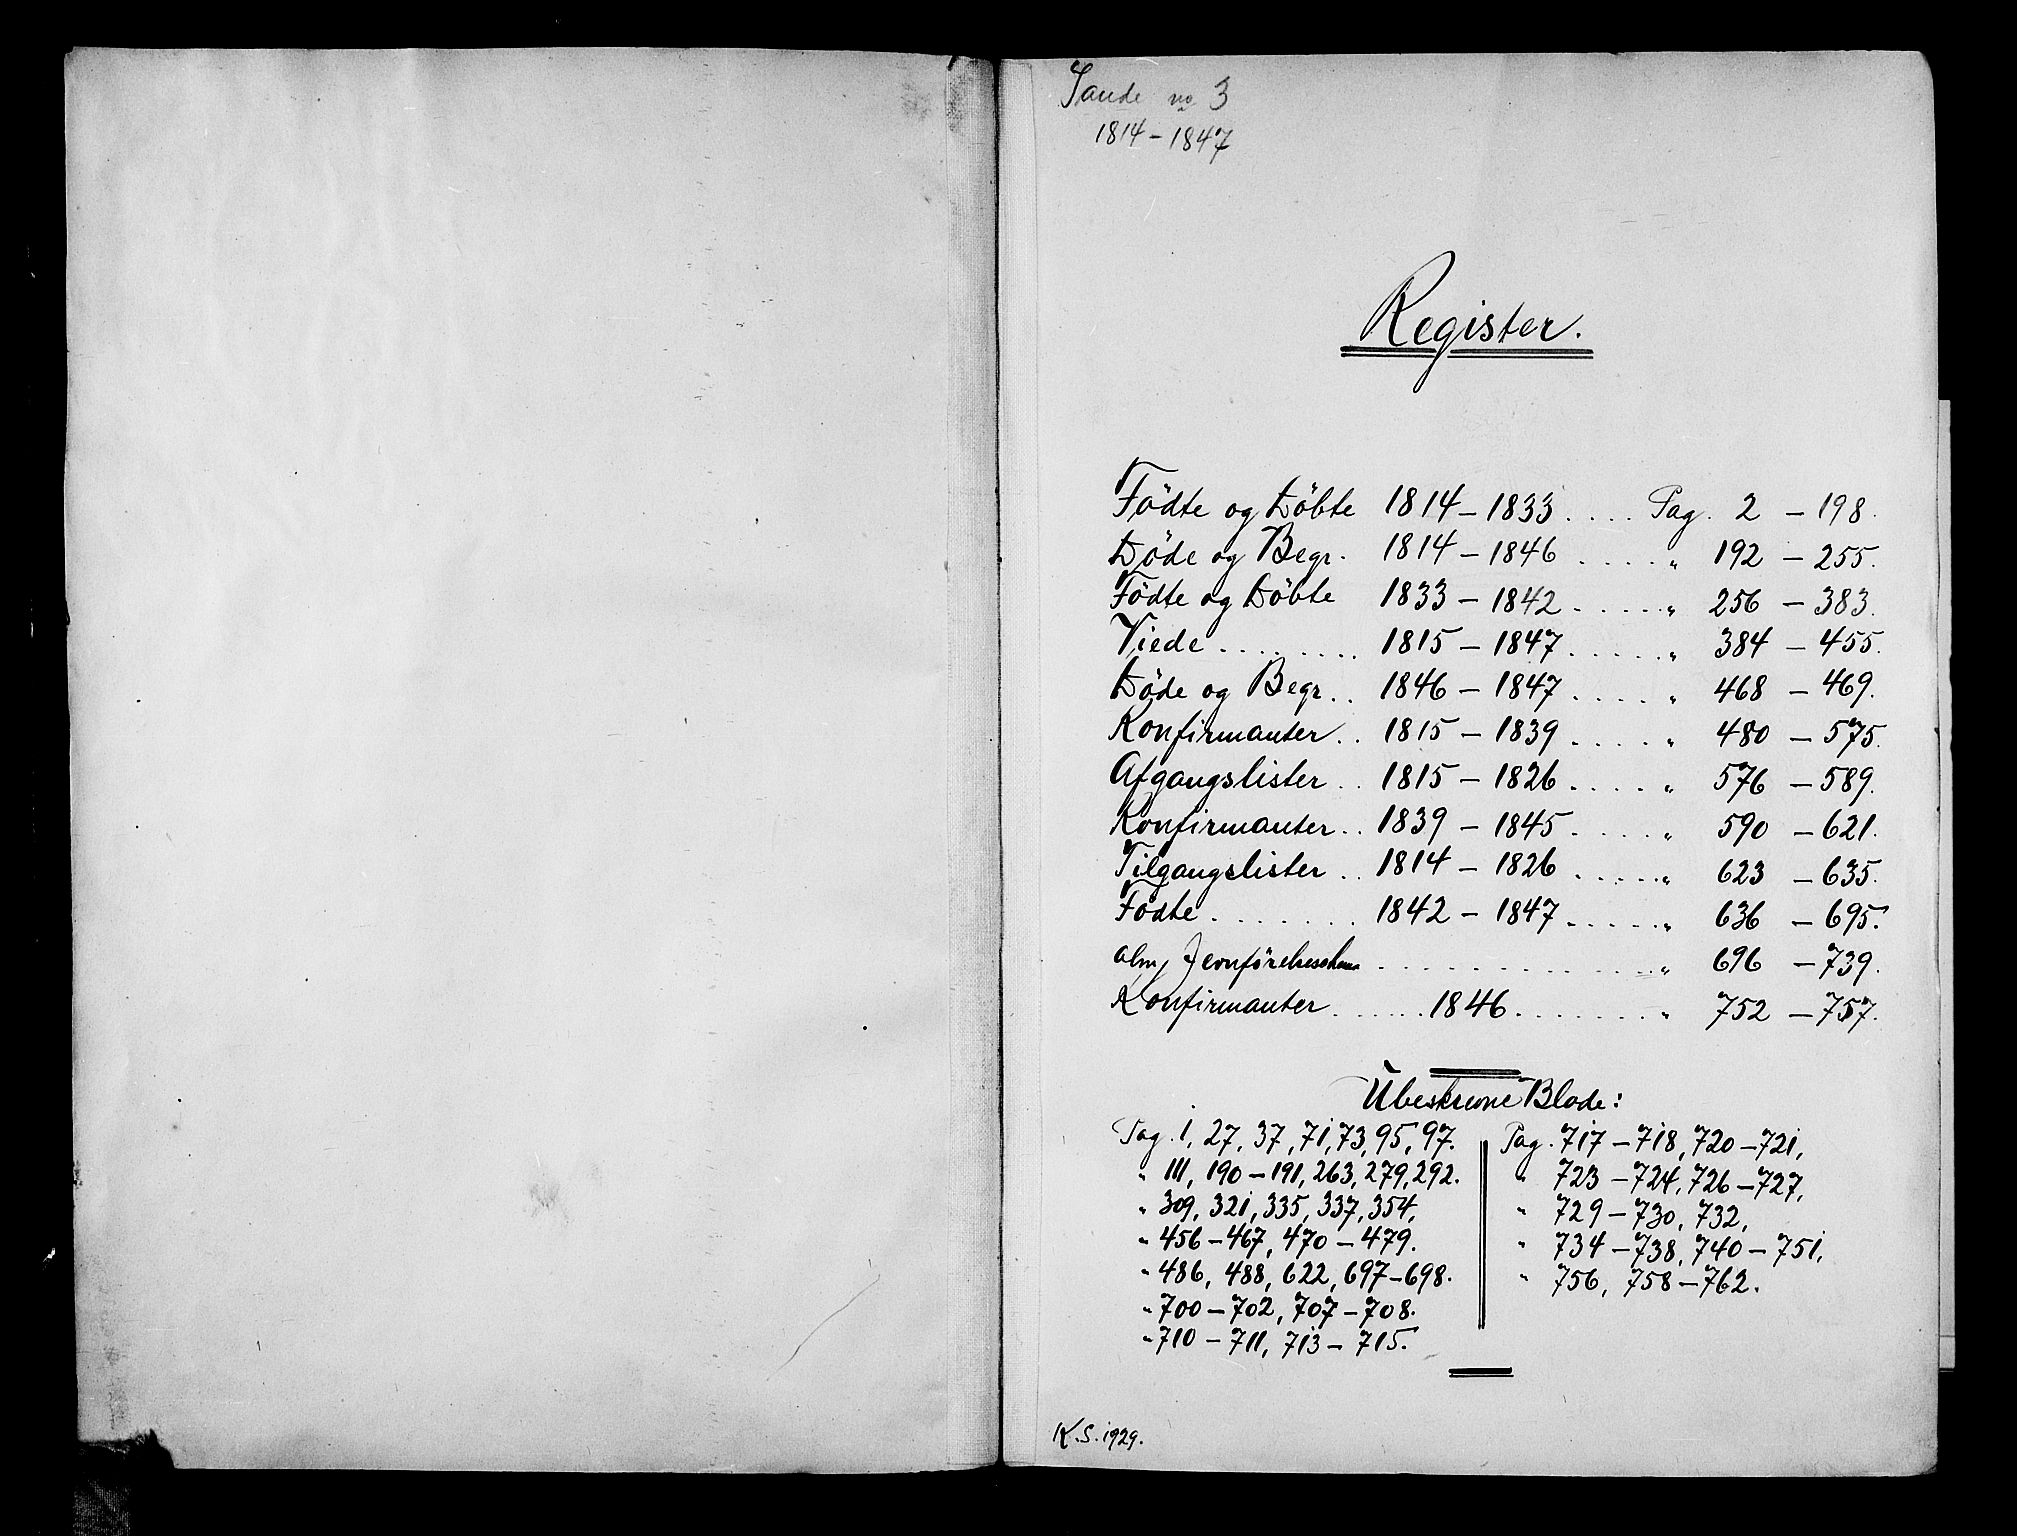 Sande no 3
1814 - 1847
Register.
Födte og Döbte 1814 - 1833 .... Pag. 2 - 198.
Döde og Begr. 1814 - 1846 .... " 192 - 255.
Födte og Döbte 1833 - 1842 ..... " 256 - 383.
Viede ........ 1815 - 1847 ..... " 384 - 455.
Döde og Begr. . 1846 - 1847 ..... " 468 - 469.
Konfirmanter .. 1815 - 1839 ..... " 480 - 575.
Afgangslister .. 1815 - 1826 ..... " 576 - 589.
Konfirmanter .. 1839 - 1845 ..... " 590 - 621.
Tilgangslister .. 1814 - 1826 ..... " 623 - 635.
Födte ....... 1842 - 1847 ..... " 636 - 695.
alm. ............... " 696 - 739.
Konfirmanter ...... 1846 ....... " 752 - 757.
Ubeskrevne Blade:
Pag. 1, 27, 37, 71, 73, 95, 97.
" 111, 190 - 191, 263, 279, 292.
" 309, 321, 335, 337, 354,
" 456 - 467, 470 - 479.
" 486, 488, 622, 697 - 698.
" 700 - 702, 707 - 708.
" 710 - 711, 713 - 715.
Pag. 717 - 718, 720 - 721,
" 723 - 724, 726 - 727,
" 729 - 730, 732,
" 734 - 738, 740 - 751,
" 756, 758 - 762.
K.S. 1929.